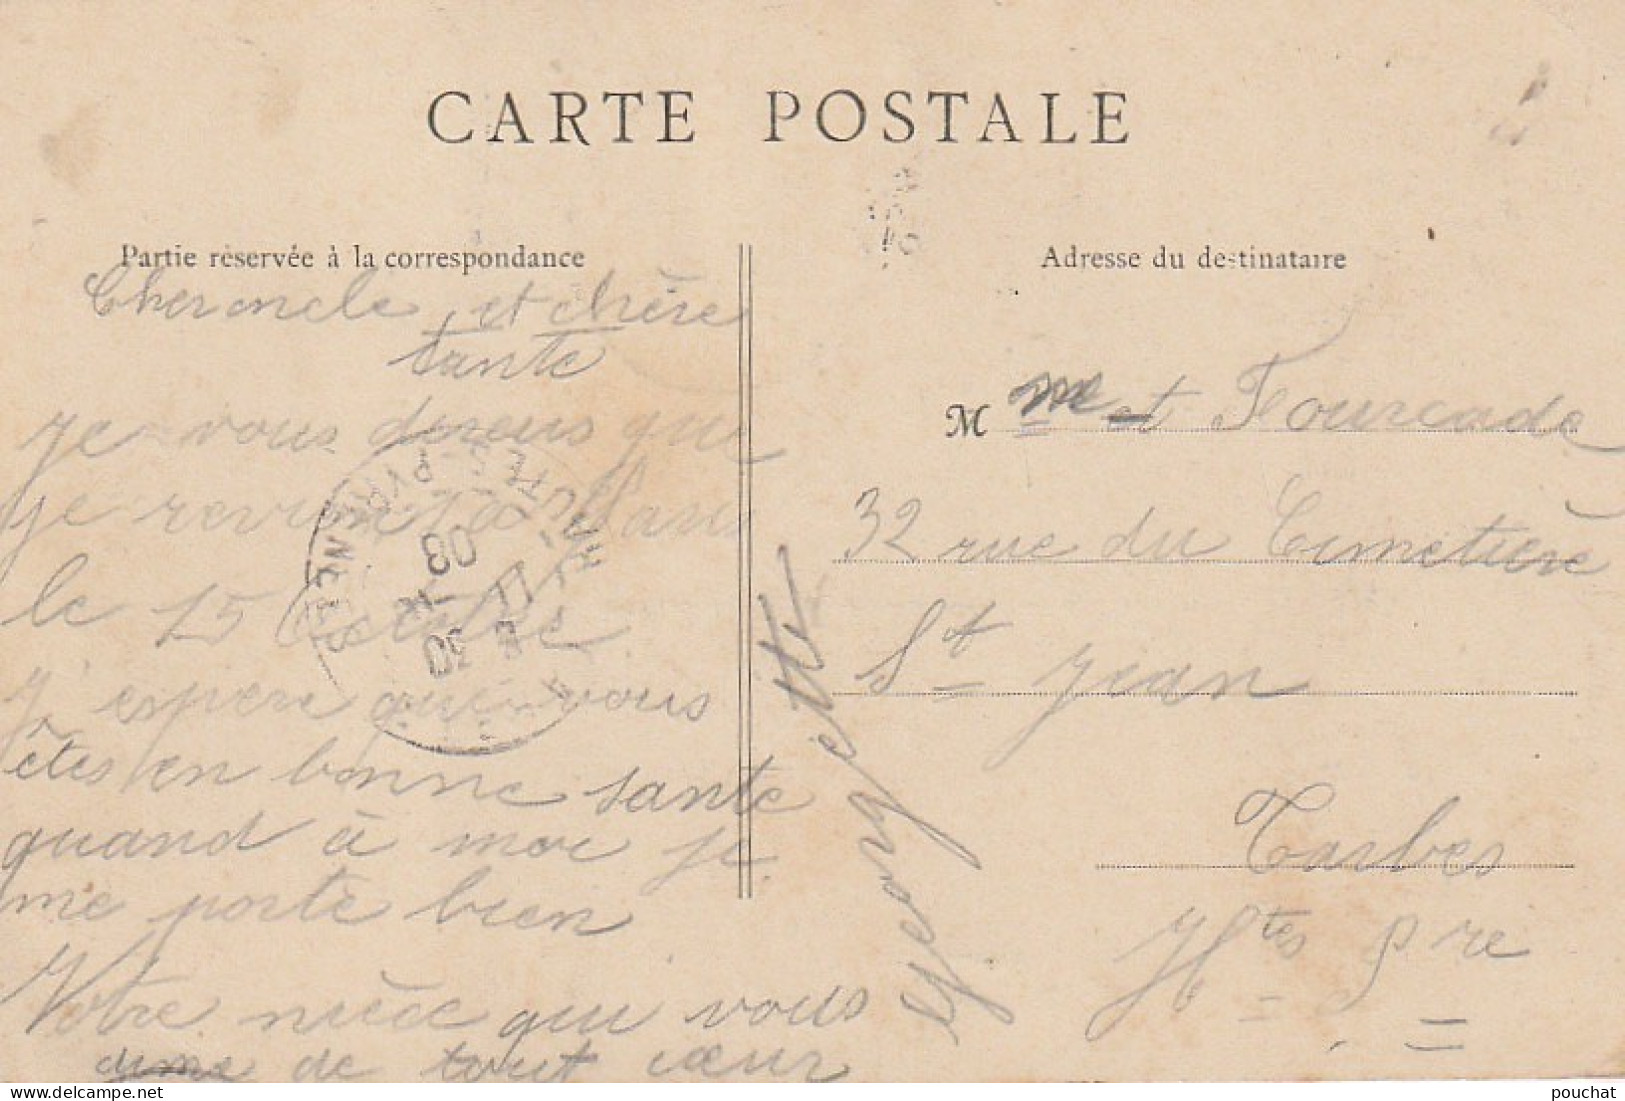 CARTE POSTALE
Partie réservée à la correspondance
Cher oncle et chère
tante
je vous dirous que
je revient à Paris
le 15 Octobre
J'espere que vous
êtes en bonne santé
quand à moi je
me porte bien
Votre nièce qui vous
aime de tout cœur
Georgette
Adresse du destinataire
M m et Fourcade
32 rue du Cimetière
St Jean
Tarbes
Htes Pre
HAUTES-PYRENEES
8 30
11 -12
08
pouchat